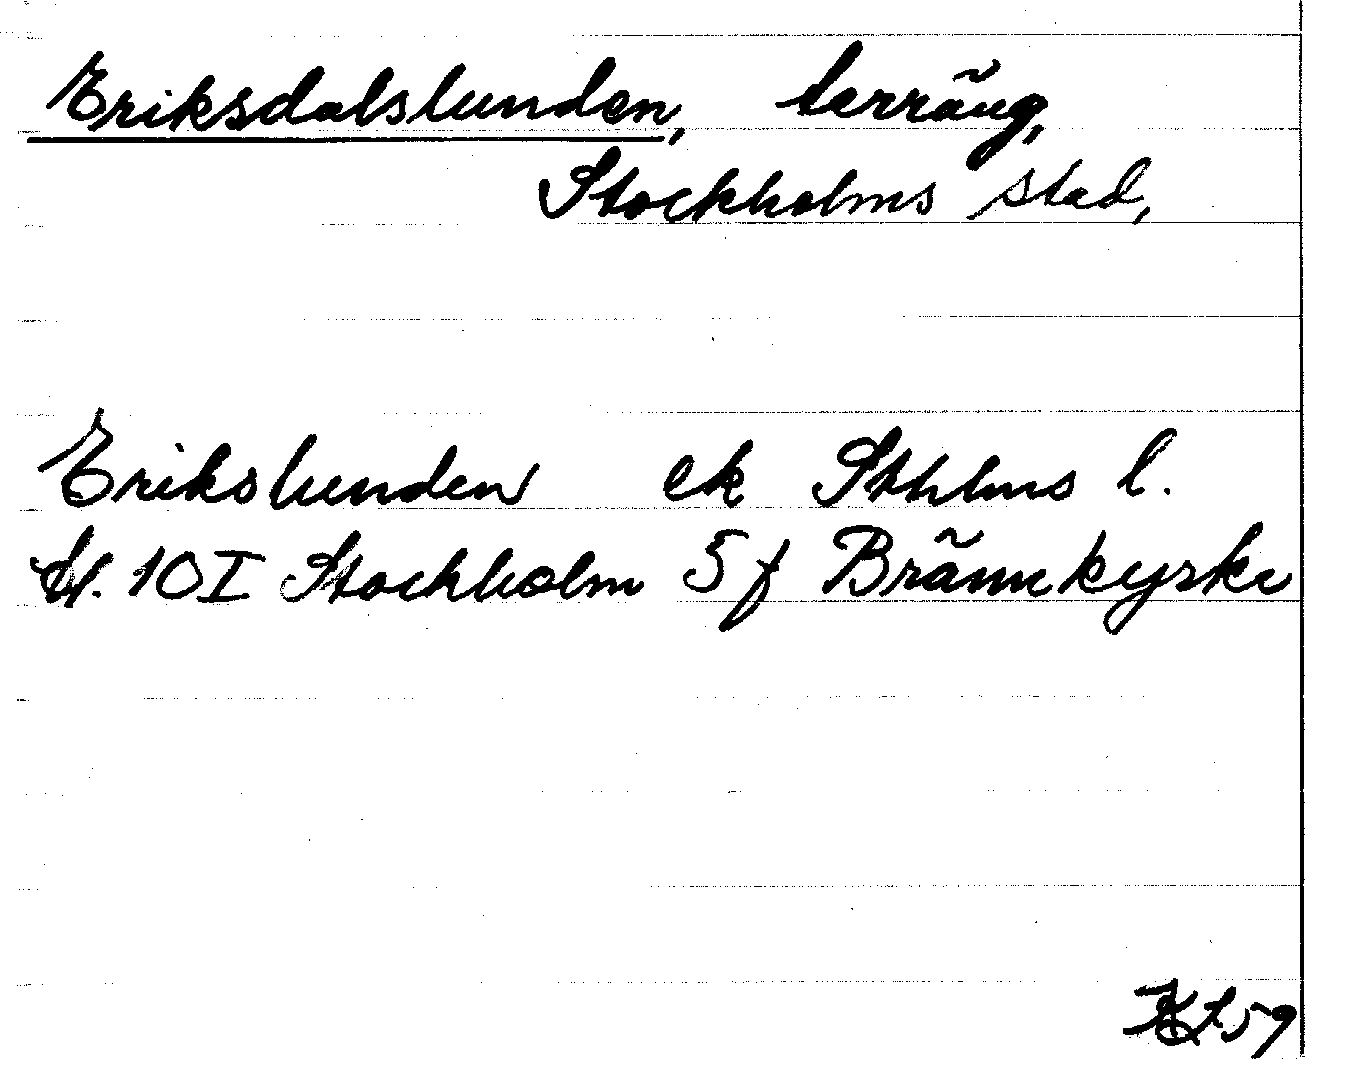 Eriksdalslunden, terräng,
Stockholms stad,
Erikslunden ek Sthlms l.
bl. 10I Stockholm 5f Brännkyrka